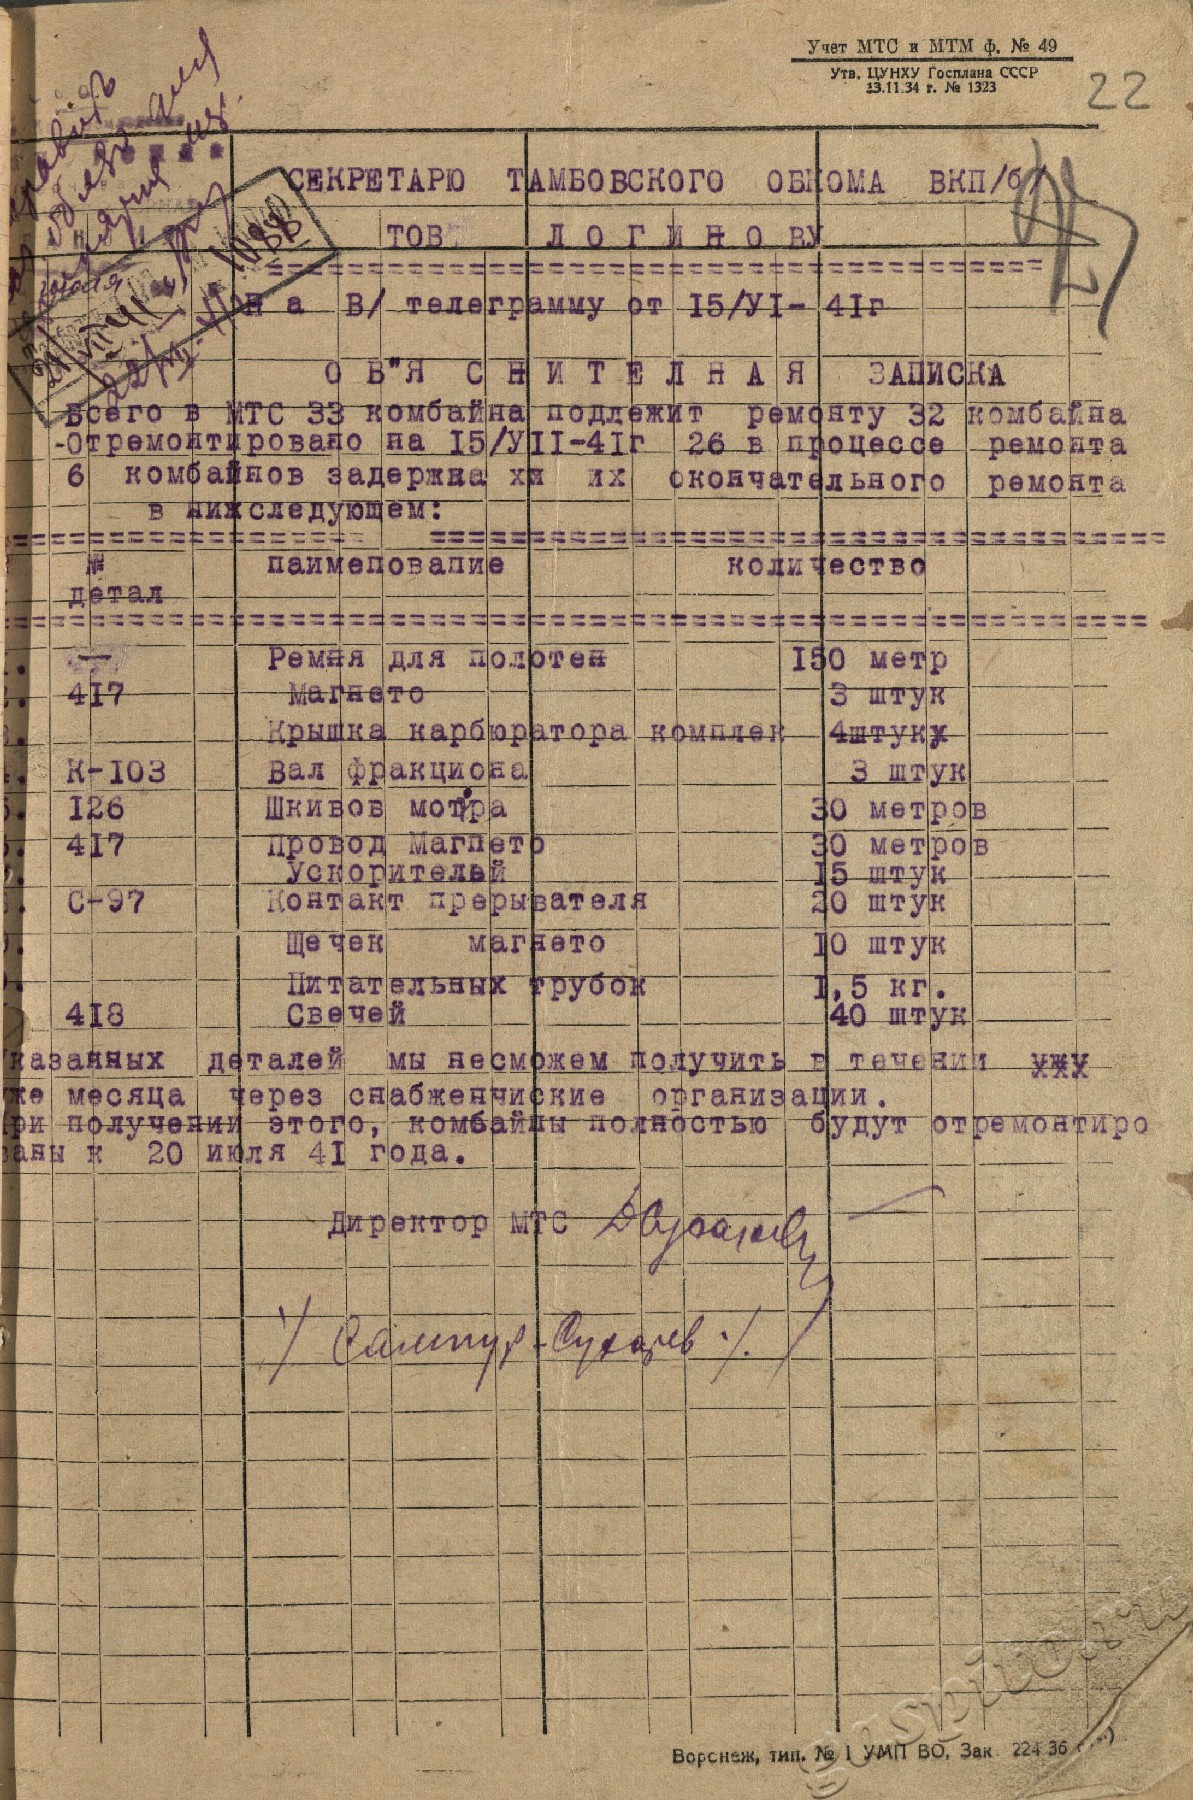 Учет МТС и МТМ ф. № 49
Утв. ЦУНХУ Госплана СССР
13.11.34 г. № 1323
22
СЕКРЕТАРЮ ТАМБОВСКОГО ОБКОМА ВКП/б/
ТОВ ЛОГИНОВУ
На В/ телеграмму от 15/УІ- 41г
ОБ"ЯСНИТЕЛНАЯ ЗАПИСКА
Всего в МТС 33 комбайна подлежит ремонту 32 комбайна
-Отремонтировано на 15/УІІ-41г 26 в процессе ремонта
6 комбайнов задержна хи их окончательного ремонта
в нихследующем:
№ наименование количество
детал
— Ремня для полотен 150 метр
417 Магнето 3 штук
Крышка карбюратора комплек 4штукх
К-103 Вал фракциона 3 штук
126 Шкивов мотра 30 метров
417 Провод Магнето 30 метров
Ускорителей 15 штук
С-97 Контакт прерывателя 20 штук
Щечек магнето 10 штук
Питательных трубок 1,5 кг.
418 Свечей 40 штук
Указанных деталей мы несможем получить в течении
же месяца через снабженчиские организации.
ри получении этого, комбайны полностью будут отремонтиро
ваны к 20 июля 41 года.
Директор МТС
/ Сампур - Сухарев /
Воронеж, тип. № 1 УМП ВО, Зак 224 36
gaspito.ru